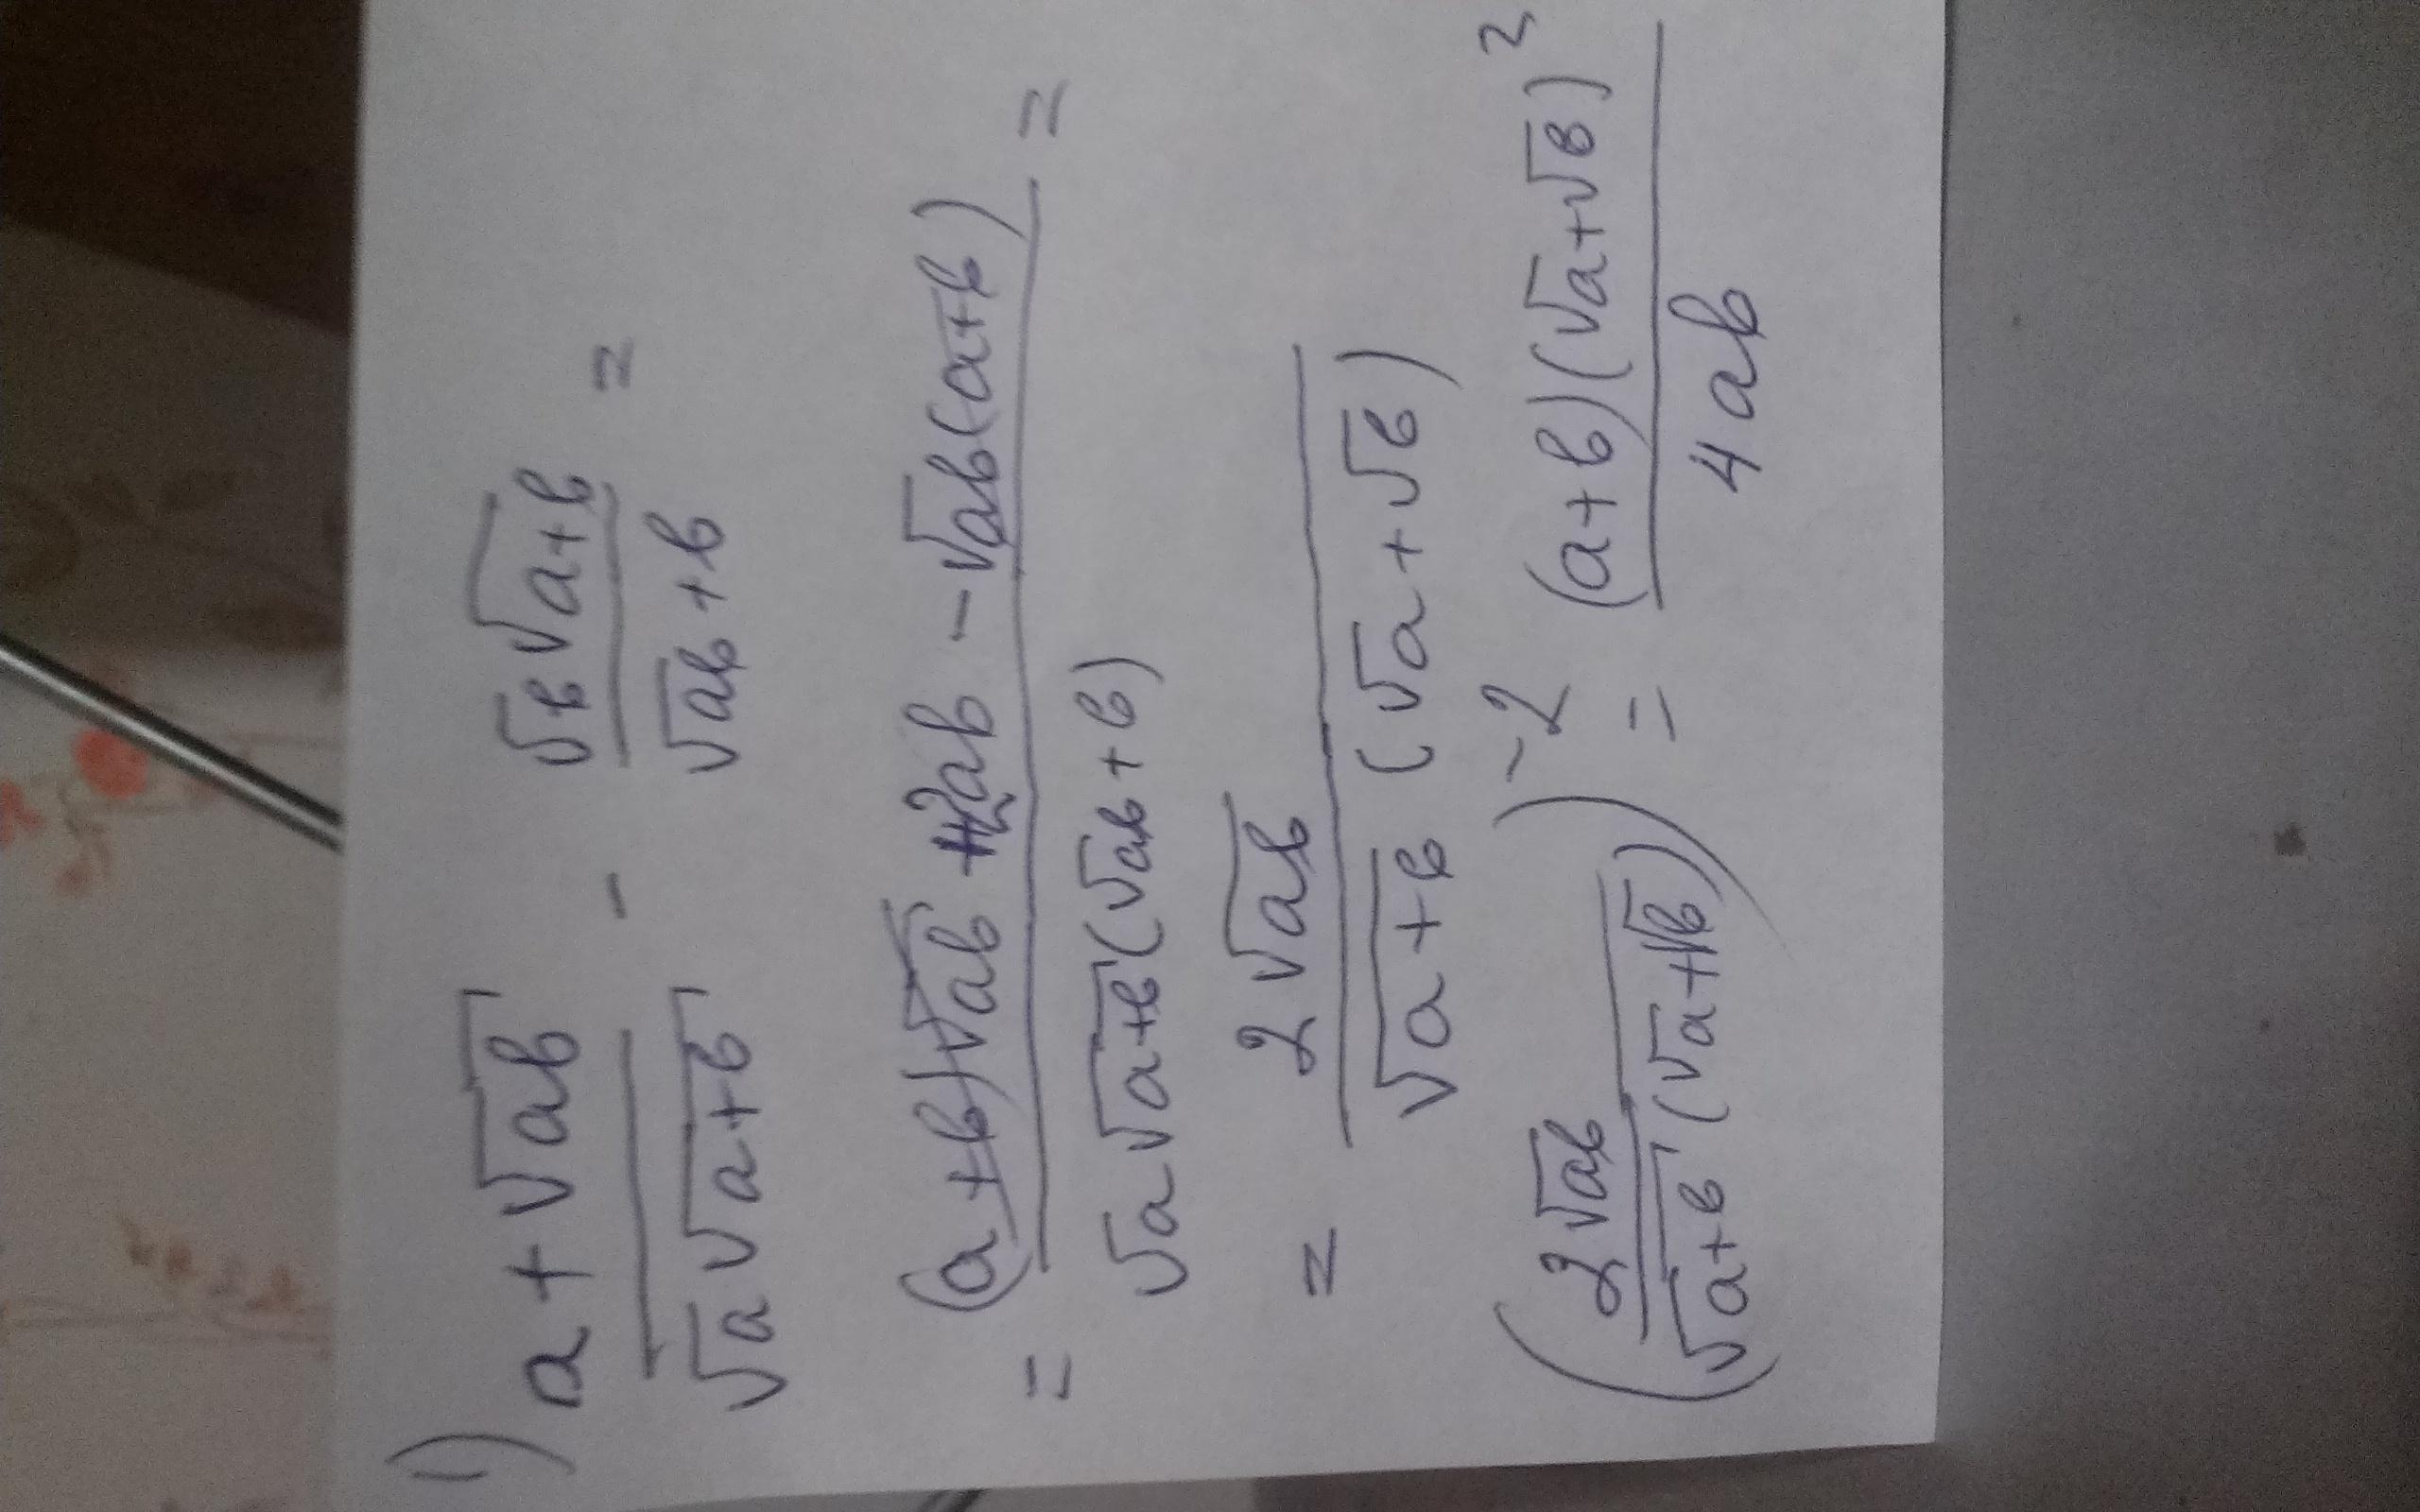 1) (a+√ab)/(√a√a+b) - (√b√a+b)/(√ab+b) =
= ((a+b)√ab+2ab-√ab(a+b))/(√a√a+b(√ab+b)) =
= (2√ab)/(√a+b(√a+√b))
((2√ab)/(√a+b(√a+√b)))^-2 = ((a+b)(√a+√b)^2)/(4ab)